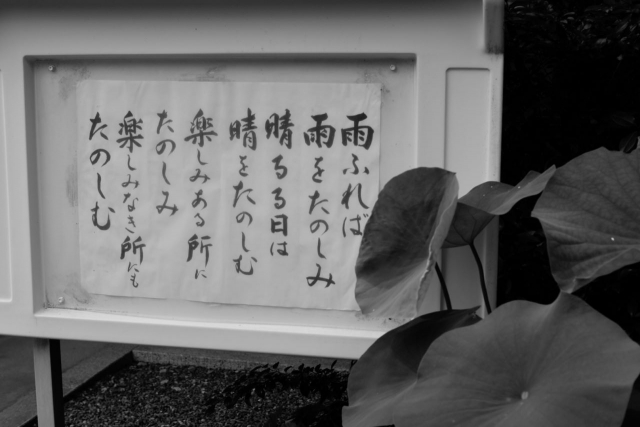 雨ふれば
雨をたのしみ
晴るる日は
晴をたのしむ
楽しみある所に
たのしみ
楽しみなき所にも
たのしむ